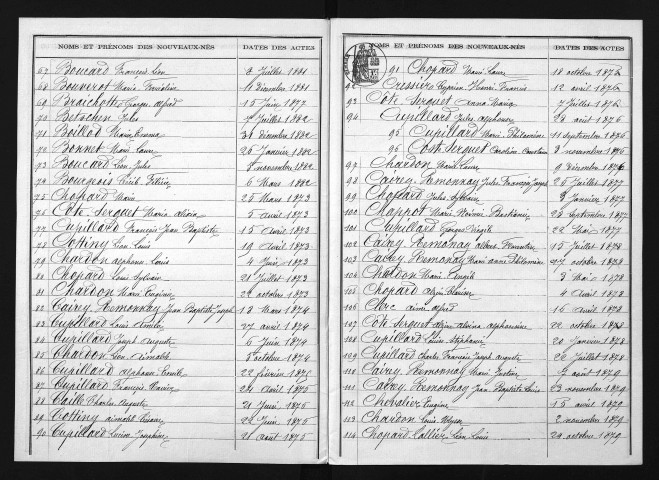 NOMS ET PRÉNOMS DES NOUVEAUX-NÉS DATES DES ACTES
67 Boucard François Léon Juillet 1881
68 Bouverot Marie 1881
69 Georges Alfred 15 Juin 1877
70 Betschen Jules 7 Juillet 1882
71 Boillod Marie Emma 31 décembre 1882
72 Bonnet Marie Laure 26 Janvier 1882
73 Boucard Léon Jules novembre 1882
74 Bourgeois 6 Mars 1882
75 Chopard Marie 25 Mars 1873
76 Côte Serguet Marie 5 avril 1873
77 Cupillard François Jean Baptiste 15 avril 1873
78 Cottiny Léon Louis 19 avril 1873
79 Chardon Alphonse Louis 4 Juin 1873
80 Chopard Louis Sylvain 21 Juillet 1873
81 Chardon Marie Eugénie 24 octobre 1873
82 Cairey Remonnay Jean Baptiste Joseph 18 Mars 1874
83 Cupillard Louis 27 avril 1874
84 Cupillard Joseph Auguste 6 Juin 1874
85 Chardon Léon Aimable 3 octobre 1874
86 Cupillard Alphonse 22 février 1875
87 Cupillard François Xavier 24 avril 1875
88 Caille Charles Auguste 21 Juin 1875
89 Cottiny Aimable 24 Juin 1875
90 Cupillard Lucien Joséphine 21 août 1875
NOMS ET PRÉNOMS DES NOUVEAUX-NÉS DATES DES ACTES
91 Chopard Marie Laure 18 octobre 1875
92 Cressier Cyprien Henri Francis 12 avril 1876
93 Côte Serguet Anna Maria 7 Juillet 1876
94 Cupillard Jules Alphonse 28 août 1876
95 Cupillard Marie Philomène 11 septembre 1876
96 Cote Serguet Caroline 8 novembre 1876
97 Chardon Marie Laure 9 décembre 1876
98 Cairey Remonnay Jules François Joseph 25 Juillet 1877
99 Chopard Jules Sylvain 3 Janvier 1877
100 Chappot Marie Noémie 25 Septembre 1877
101 Cupillard Georges Virgile 22 Mai 1877
102 Cairey Remonay Albert 13 Juillet 1878
103 Cairey Remonay Marie Anne Philomène 27 octobre 1878
104 Chardon Marie Angèle 3 Mai 1878
105 Chopard 4 avril 1878
106 Clerc Aimé Alfred 16 avril 1878
107 Côte Serguet Aline Alvina Alphonsine 22 octobre 1878
108 Cupillard Louise Stéphanie 20 Janvier 1878
109 Cupillard Charles François Joseph Auguste 20 Juillet 1878
110 Cairey Remonnay Marie Justine 7 août 1879
111 Cairey Remonnay Jean Baptiste Louis 23 novembre 1879
112 Chevalier Eugène 13 avril 1879
113 Chardon Louis Ulysse 2 novembre 1879
114 Chopard Lallier Léon Louis 29 octobre 1879